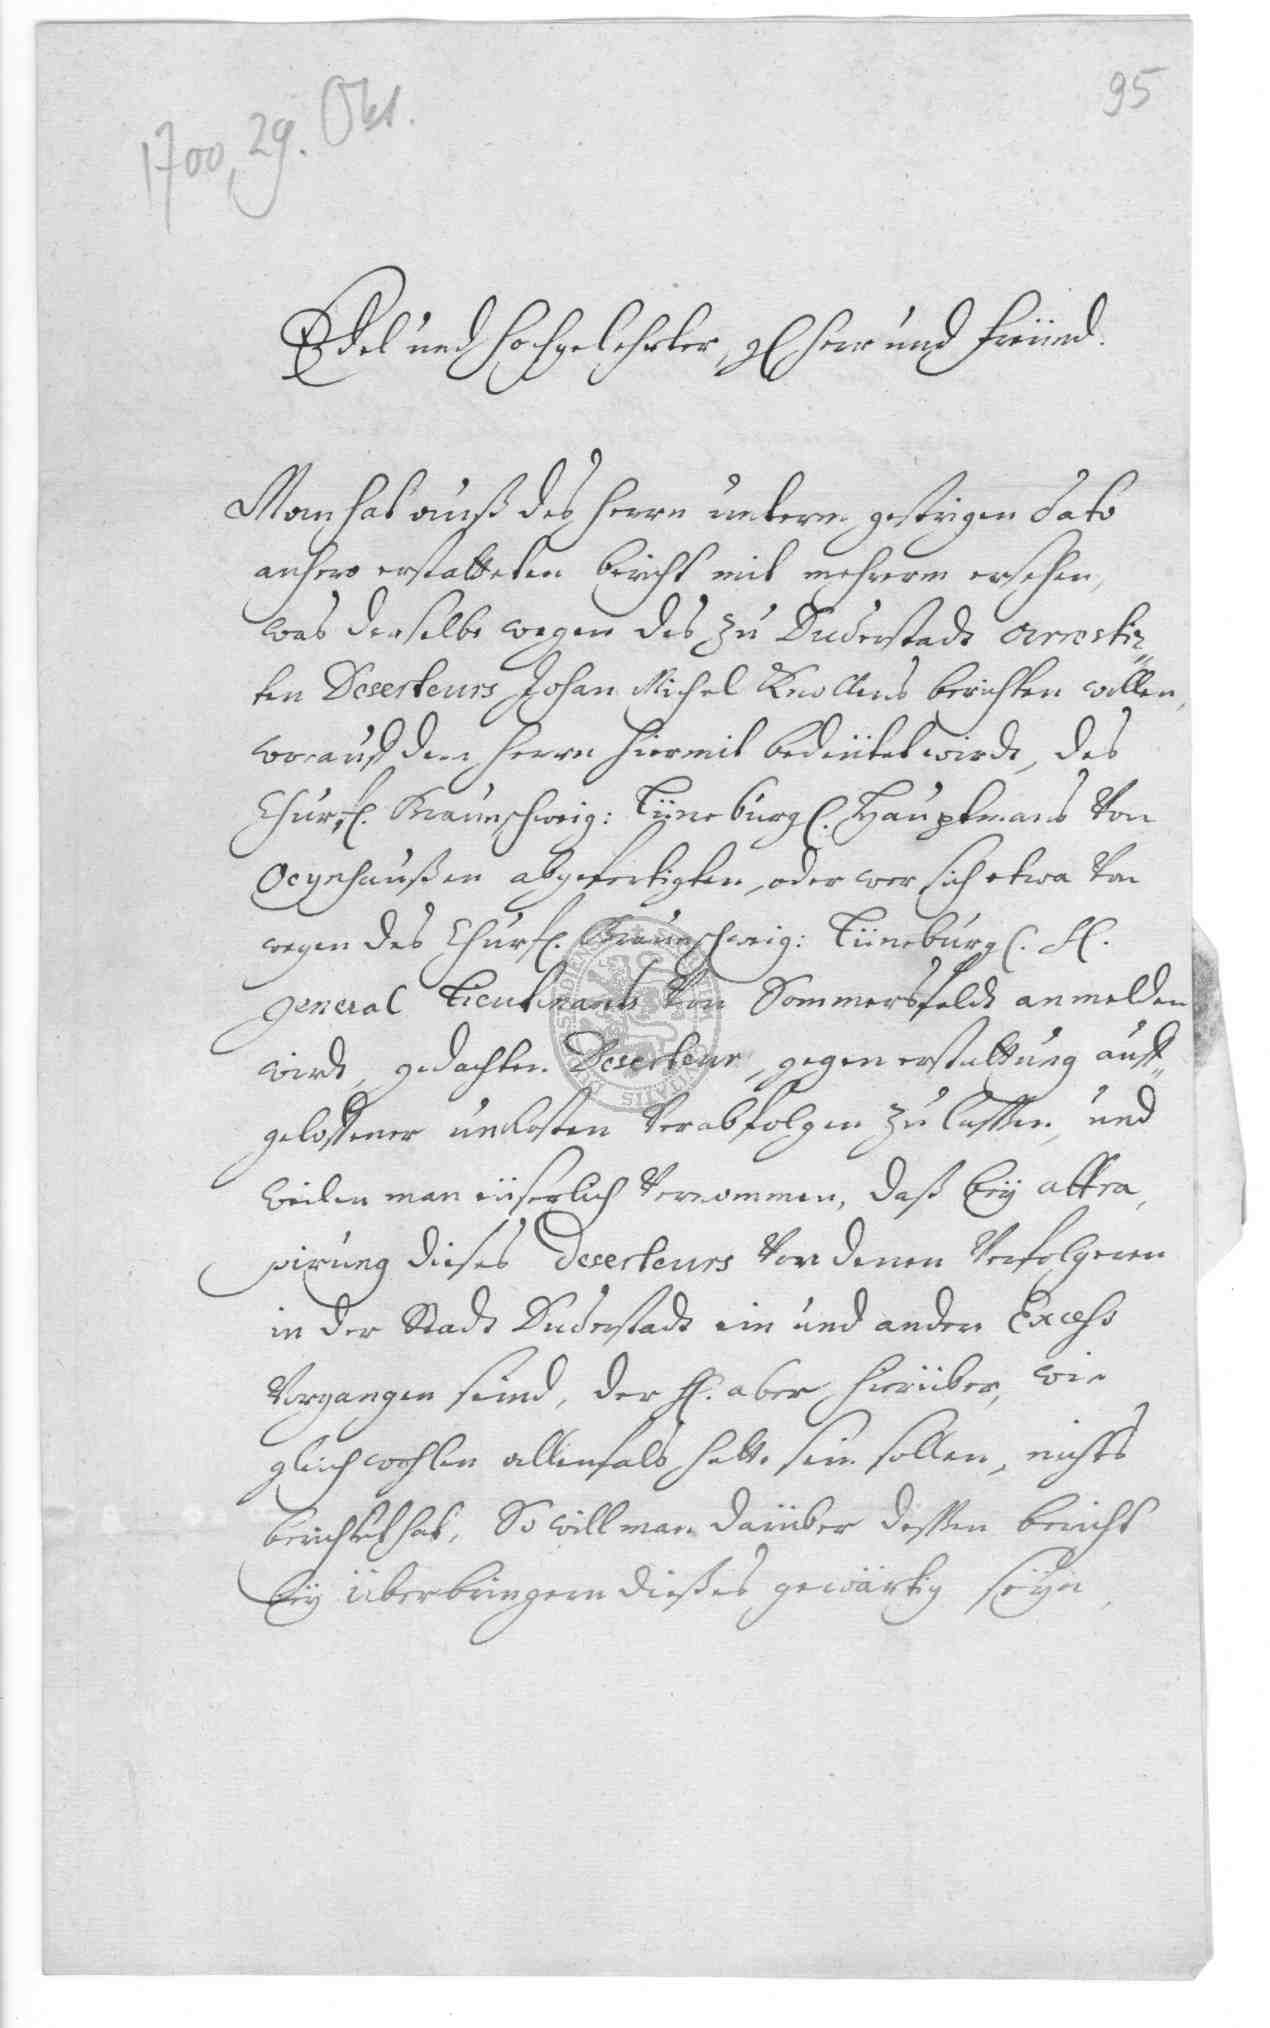 95
1700, 29. Okt.
Edel und hochgelehrter, gl herr und freünd.
Man hat auß des herrn unterm gestrigen dato
anhero erstatteten bericht mit mehrerm ersehen,
was derselbe wegen des zu Duderstadt arrestir„
ten Deserteurs Johan Michel Knollens berichten wollen,
worauff dem herrn hiermit bedeütet wirdt, des
Churfl. Braunschweig: Lüneburgl. Hauptmans Von
Oeynhaußen abgefertigten, oder wer sich etwa Von
wegen des Churfl. Braunschweig: Lüneburgl. H.
general Lieutenants Von Sommersfeldt anmelden
wirdt, gedachten Deserteur, gegen erstattung auff„
geloffener unkosten Verabfolgen zu lassen, und
weilen man eüserlich Vernommen, daß bey attra„
pirung dieses Deserteurs Von denen Verfolgeren
in der Stadt Duderstadt ein und andere Excess
Vorgangen seind, der H. aber hierüber, wie
gleichwohlen allenfals hette sein sollen, nichts
berichtet hat, So will man darüber dessen bericht
bey Überbringern dießes gewärtig seyn,
SIGILLUM CIVITATIS